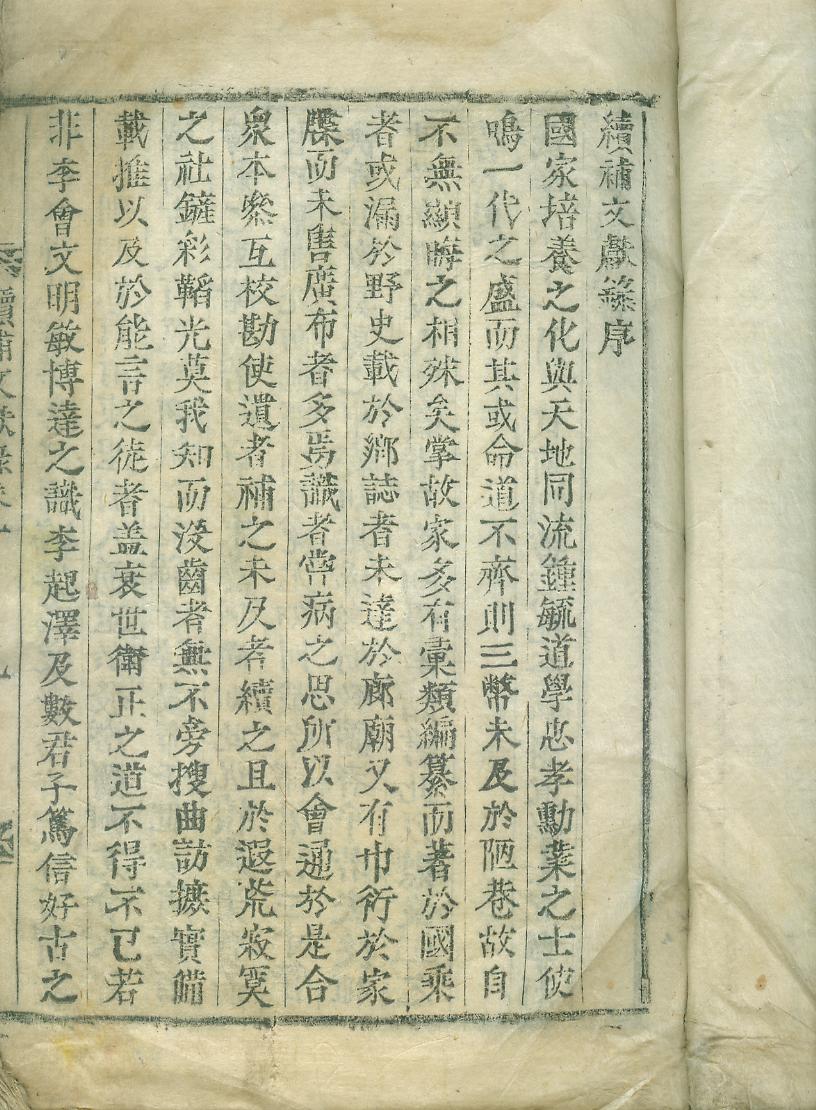 續補文獻錄序
國家培養之化與天地同流鍾毓道學忠孝勳業之士使
鳴一代之盛而其或命道不齊則三幣未及於陋巷故自
不無顯晦之相殊矣掌故家多有彙類編纂而著於國乘
者或漏於野史載於鄕誌者未達於廊廟又有巾衍於家
牒而未售廣布者多焉識者嘗病之思所以會通於是合
衆本叅互校勘使遺者補之未及者續之且於遐荒寂寞
之社鏟彩韜光莫我知而沒齒者無不旁搜曲訪摭實備
載推以及於能言之徒者盖衰世衛正之道不得不已若
非李會文明敏博達之識李起澤及數君子篤信好古之
續補文獻錄卷一